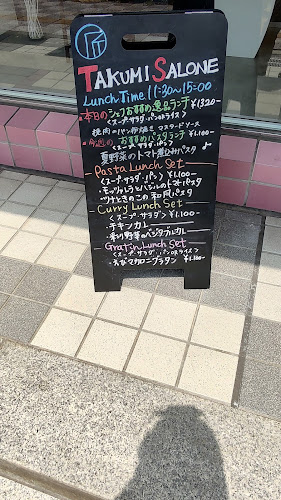 TAKUMI SALONE
LUNCH TIME 11:30~15:00
・本日のシェフおすすめ逸品ランチ ¥1,320
<スープ・サラダ・パンorライス>
豚肉のパン粉焼き マスタードソース
・今週のおすすめパスタランチ ¥1,100
<スープ・サラダ・パン>
夏野菜のトマト煮込みパスタ
Pasta Lunch Set
<スープ・サラダ・パン> ¥1,100
・モッツァレラとバジルのトマトパスタ
・ツナときのこの和風パスタ
Curry Lunch Set
<スープ・サラダ> ¥1,100
・チキンカレー
・彩り野菜のベジタブルカレー
Gratin Lunch Set
<スープ・サラダ・パンorライス>
・えびマカロニグラタン ¥1,100